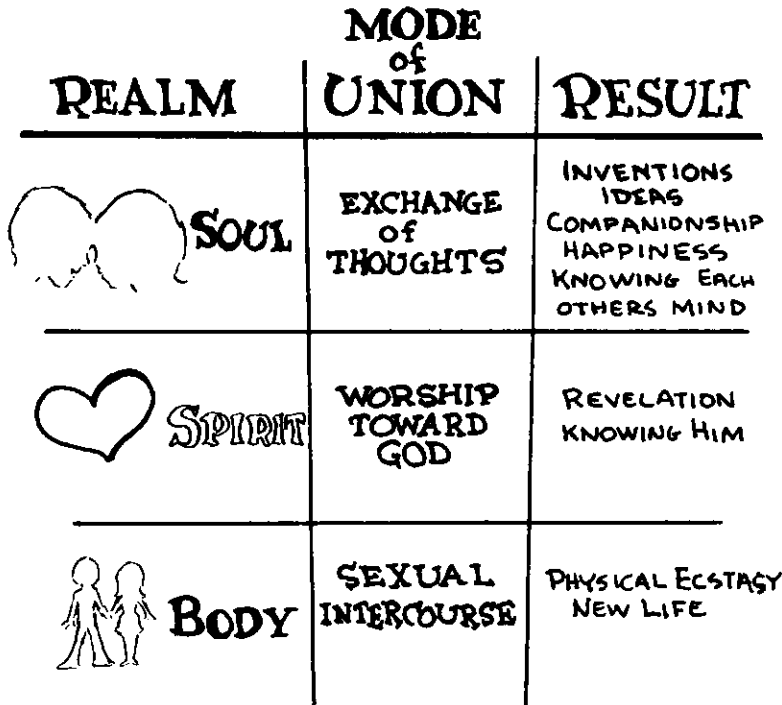 REALM
MODE
of
UNION
RESULT
SOUL
EXCHANGE
of
THOUGHTS
INVENTIONS
IDEAS
COMPANIONSHIP
HAPPINESS
KNOWING EACH
OTHERS MIND
SPIRIT
WORSHIP
TOWARD
GOD
REVELATION
KNOWING HIM
BODY
SEXUAL
INTERCOURSE
PHYSICAL ECSTASY
NEW LIFE